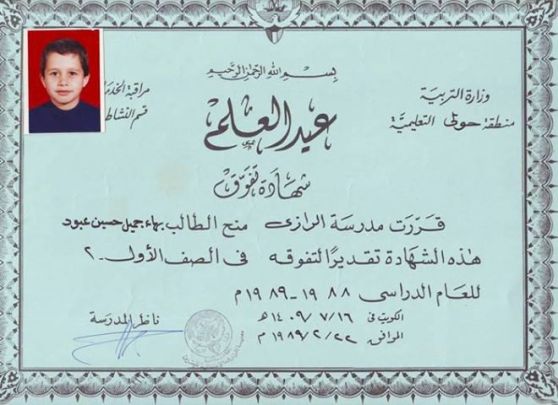 بسم الله الرحمن الرحيم
وزارة التربية
منطقة حولي التعليمية
مراقبة الخدمة
قسم النشاط
عيد العلم
شهادة تفوق
قررت مدرسة الرازي منح الطالب بهاء جميل حسين عبود
هذه الشهادة تقديرًا لتفوقه في الصف الأول - ٢
للعام الدراسي ٨٨ ١٩ - ٨٩ ١٩ م
الكويت في ١٦ / ٧ / ١٤٠٩ هـ
الموافق ٢٢ / ٢ / ١٩٨٩ م
ناظر المدرسة